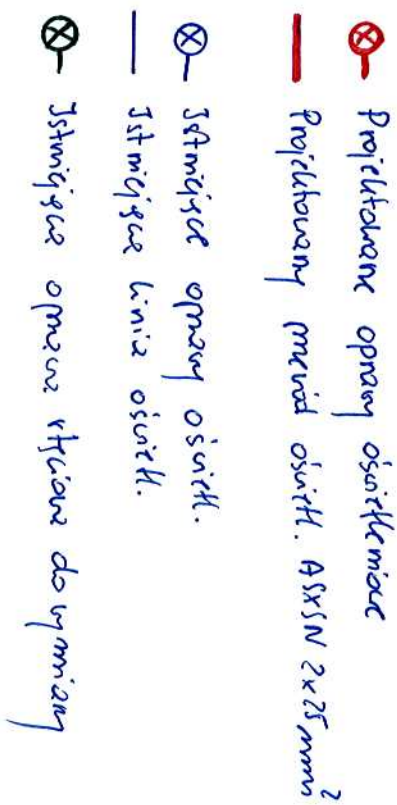 Projektowane oprawy oświetleniowe
Projektowany przewód oświetl. ASXSN 2x25mm²
Istniejące oprawy oświetl.
Istniejąca linia oświetl.
Istniejąca oprawa rtęciowa do wymiany